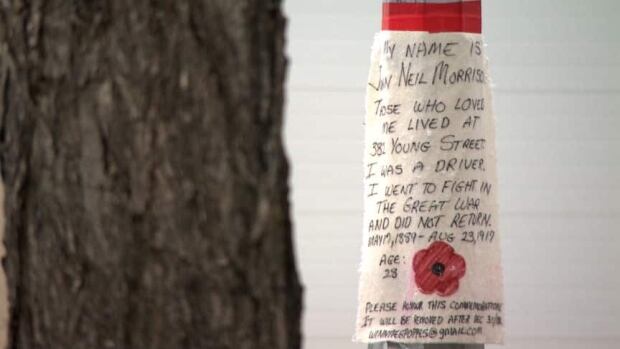 MY NAME IS
NEIL MORRISO
THOSE WHO LOVED
ME LIVED AT
YOUNG STREET
I WAS A DRIVER.
I WENT TO FIGHT IN
THE GREAT WAR
AND DID NOT RETURN.
1889 - AUG 23, 1917
AGE:
28
PLEASE HONOUR THIS COMMEMORATION
IT WILL BE REMOVED AFTER DEC
WINNIPEGPOPPIES@GMAIL.COM